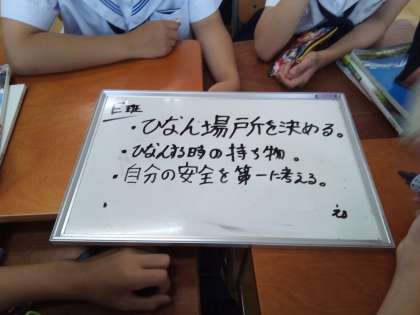 ・ひなん場所を決める。
・ひなんする時の持ち物。
・自分の安全を第一に考える。